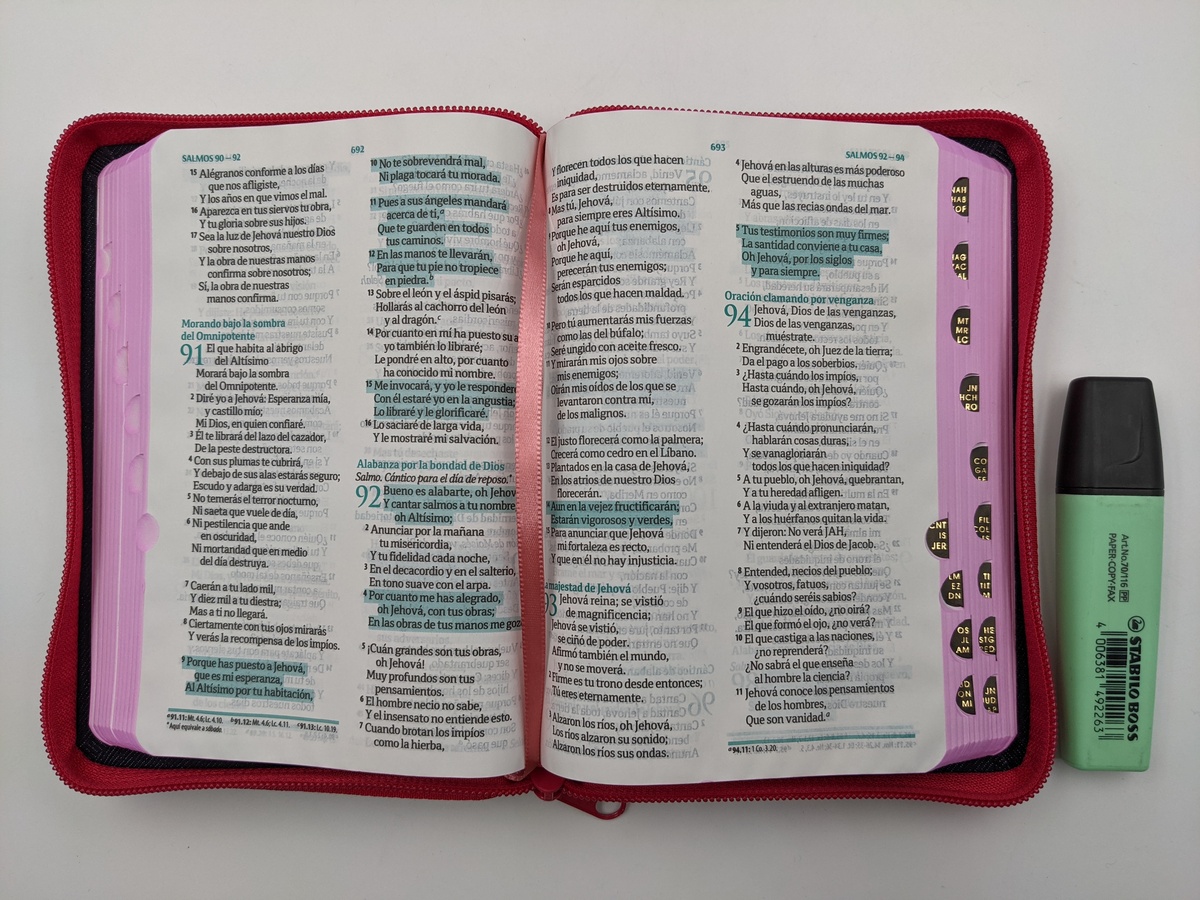 SALMOS 90—92
692
15 Alégranos conforme a los días
que nos afligiste,
Y los años en que vimos el mal.
16 Aparezca en tus siervos tu obra,
Y tu gloria sobre sus hijos.
17 Sea la luz de Jehová nuestro Dios
sobre nosotros,
Y la obra de nuestras manos
confirma sobre nosotros;
Sí, la obra de nuestras
manos confirma.
Morando bajo la sombra
del Omnipotente
91 El que habita al abrigo
del Altísimo
Morará bajo la sombra
del Omnipotente.
2 Diré yo a Jehová: Esperanza mía,
y castillo mío;
Mi Dios, en quien confiaré.
3 Él te librará del lazo del cazador,
De la peste destructora.
4 Con sus plumas te cubrirá,
Y debajo de sus alas estarás seguro;
Escudo y adarga es su verdad.
5 No temerás el terror nocturno,
Ni saeta que vuele de día,
6 Ni pestilencia que ande
en oscuridad,
Ni mortandad que en medio
del día destruya.
7 Caerán a tu lado mil,
Y diez mil a tu diestra;
Mas a ti no llegará.
8 Ciertamente con tus ojos mirarás
Y verás la recompensa de los impíos.
9 Porque has puesto a Jehová,
que es mi esperanza,
Al Altísimo por tu habitación,
a 91.11: Mt. 4.6; Lc. 4.10. b 91.12: Mt. 4.6; Lc. 4.11. c 91.13: Lc. 10.19.
* Aquí equivale a sábado.
10 No te sobrevendrá mal,
Ni plaga tocará tu morada.
11 Pues a sus ángeles mandará
acerca de ti,a
Que te guarden en todos
tus caminos.
12 En las manos te llevarán,
Para que tu pie no tropiece
en piedra.b
13 Sobre el león y el áspid pisarás;
Hollarás al cachorro del león
y al dragón.c
14 Por cuanto en mí ha puesto su a
yo también lo libraré;
Le pondré en alto, por cuanto
ha conocido mi nombre.
15 Me invocará, y yo le responder
Con él estaré yo en la angustia;
Lo libraré y le glorificaré.
16 Lo saciaré de larga vida,
Y le mostraré mi salvación.
Alabanza por la bondad de Dios
Salmo. Cántico para el día de reposo.*
92 Bueno es alabarte, oh Jehov
Y cantar salmos a tu nombre
oh Altísimo;
2 Anunciar por la mañana
tu misericordia,
Y tu fidelidad cada noche,
3 En el decacordio y en el salterio,
En tono suave con el arpa.
4 Por cuanto me has alegrado,
oh Jehová, con tus obras;
En las obras de tus manos me goz
5 ¡Cuán grandes son tus obras,
oh Jehová!
Muy profundos son tus
pensamientos.
6 El hombre necio no sabe,
Y el insensato no entiende esto.
7 Cuando brotan los impíos
como la hierba,
693
SALMOS 92—94
Y florecen todos los que hacen
iniquidad,
Es para ser destruidos eternamente.
Mas tú, Jehová,
para siempre eres Altísimo.
Porque he aquí tus enemigos,
oh Jehová,
Porque he aquí,
perecerán tus enemigos;
Serán esparcidos
todos los que hacen maldad.
Pero tú aumentarás mis fuerzas
como las del búfalo;
Seré ungido con aceite fresco.
Y mirarán mis ojos sobre
mis enemigos;
Oirán mis oídos de los que se
levantaron contra mí,
de los malignos.
El justo florecerá como la palmera;
Crecerá como cedro en el Líbano.
Plantados en la casa de Jehová,
En los atrios de nuestro Dios
florecerán.
Aun en la vejez fructificarán;
Estarán vigorosos y verdes,
Para anunciar que Jehová
mi fortaleza es recto,
Y que en él no hay injusticia.
majestad de Jehová
93 Jehová reina; se vistió
de magnificencia;
Jehová se vistió,
se ciñó de poder.
Afirmó también el mundo,
y no se moverá.
2 Firme es tu trono desde entonces;
Tú eres eternamente.
3 Alzaron los ríos, oh Jehová,
Los ríos alzaron su sonido;
Alzaron los ríos sus ondas.
4 Jehová en las alturas es más poderoso
Que el estruendo de las muchas
aguas,
Más que las recias ondas del mar.
5 Tus testimonios son muy firmes;
La santidad conviene a tu casa,
Oh Jehová, por los siglos
y para siempre.
Oración clamando por venganza
94 Jehová, Dios de las venganzas,
Dios de las venganzas,
muéstrate.
2 Engrandécete, oh Juez de la tierra;
Da el pago a los soberbios.
3 ¿Hasta cuándo los impíos,
Hasta cuándo, oh Jehová,
se gozarán los impíos?
4 ¿Hasta cuándo pronunciarán,
hablarán cosas duras,
Y se vanagloriarán
todos los que hacen iniquidad?
5 A tu pueblo, oh Jehová, quebrantan,
Y a tu heredad afligen.
6 A la viuda y al extranjero matan,
Y a los huérfanos quitan la vida.
7 Y dijeron: No verá JAH,
Ni entenderá el Dios de Jacob.
8 Entended, necios del pueblo;
Y vosotros, fatuos,
¿cuándo seréis sabios?
9 El que hizo el oído, ¿no oirá?
El que formó el ojo, ¿no verá?
10 El que castiga a las naciones,
¿no reprenderá?
¿No sabrá el que enseña
al hombre la ciencia?
11 Jehová conoce los pensamientos
de los hombres,
Que son vanidad.a
a 94.11: 1 Co. 3.20.
NAH
HAB
SOF
HAG
ZAC
MAL
MT
MR
LC
JN
HCH
RO
CO
GA
EF
CNT
IS
JER
FIL
COL
LM
EZ
DN
TI
OS
JL
AM
HE
STG
PED
ON
MI
JN
JUD
Art.No. 70/116 PP
PAPER-COPY-FAX
STABILO BOSS
4 006381 492263